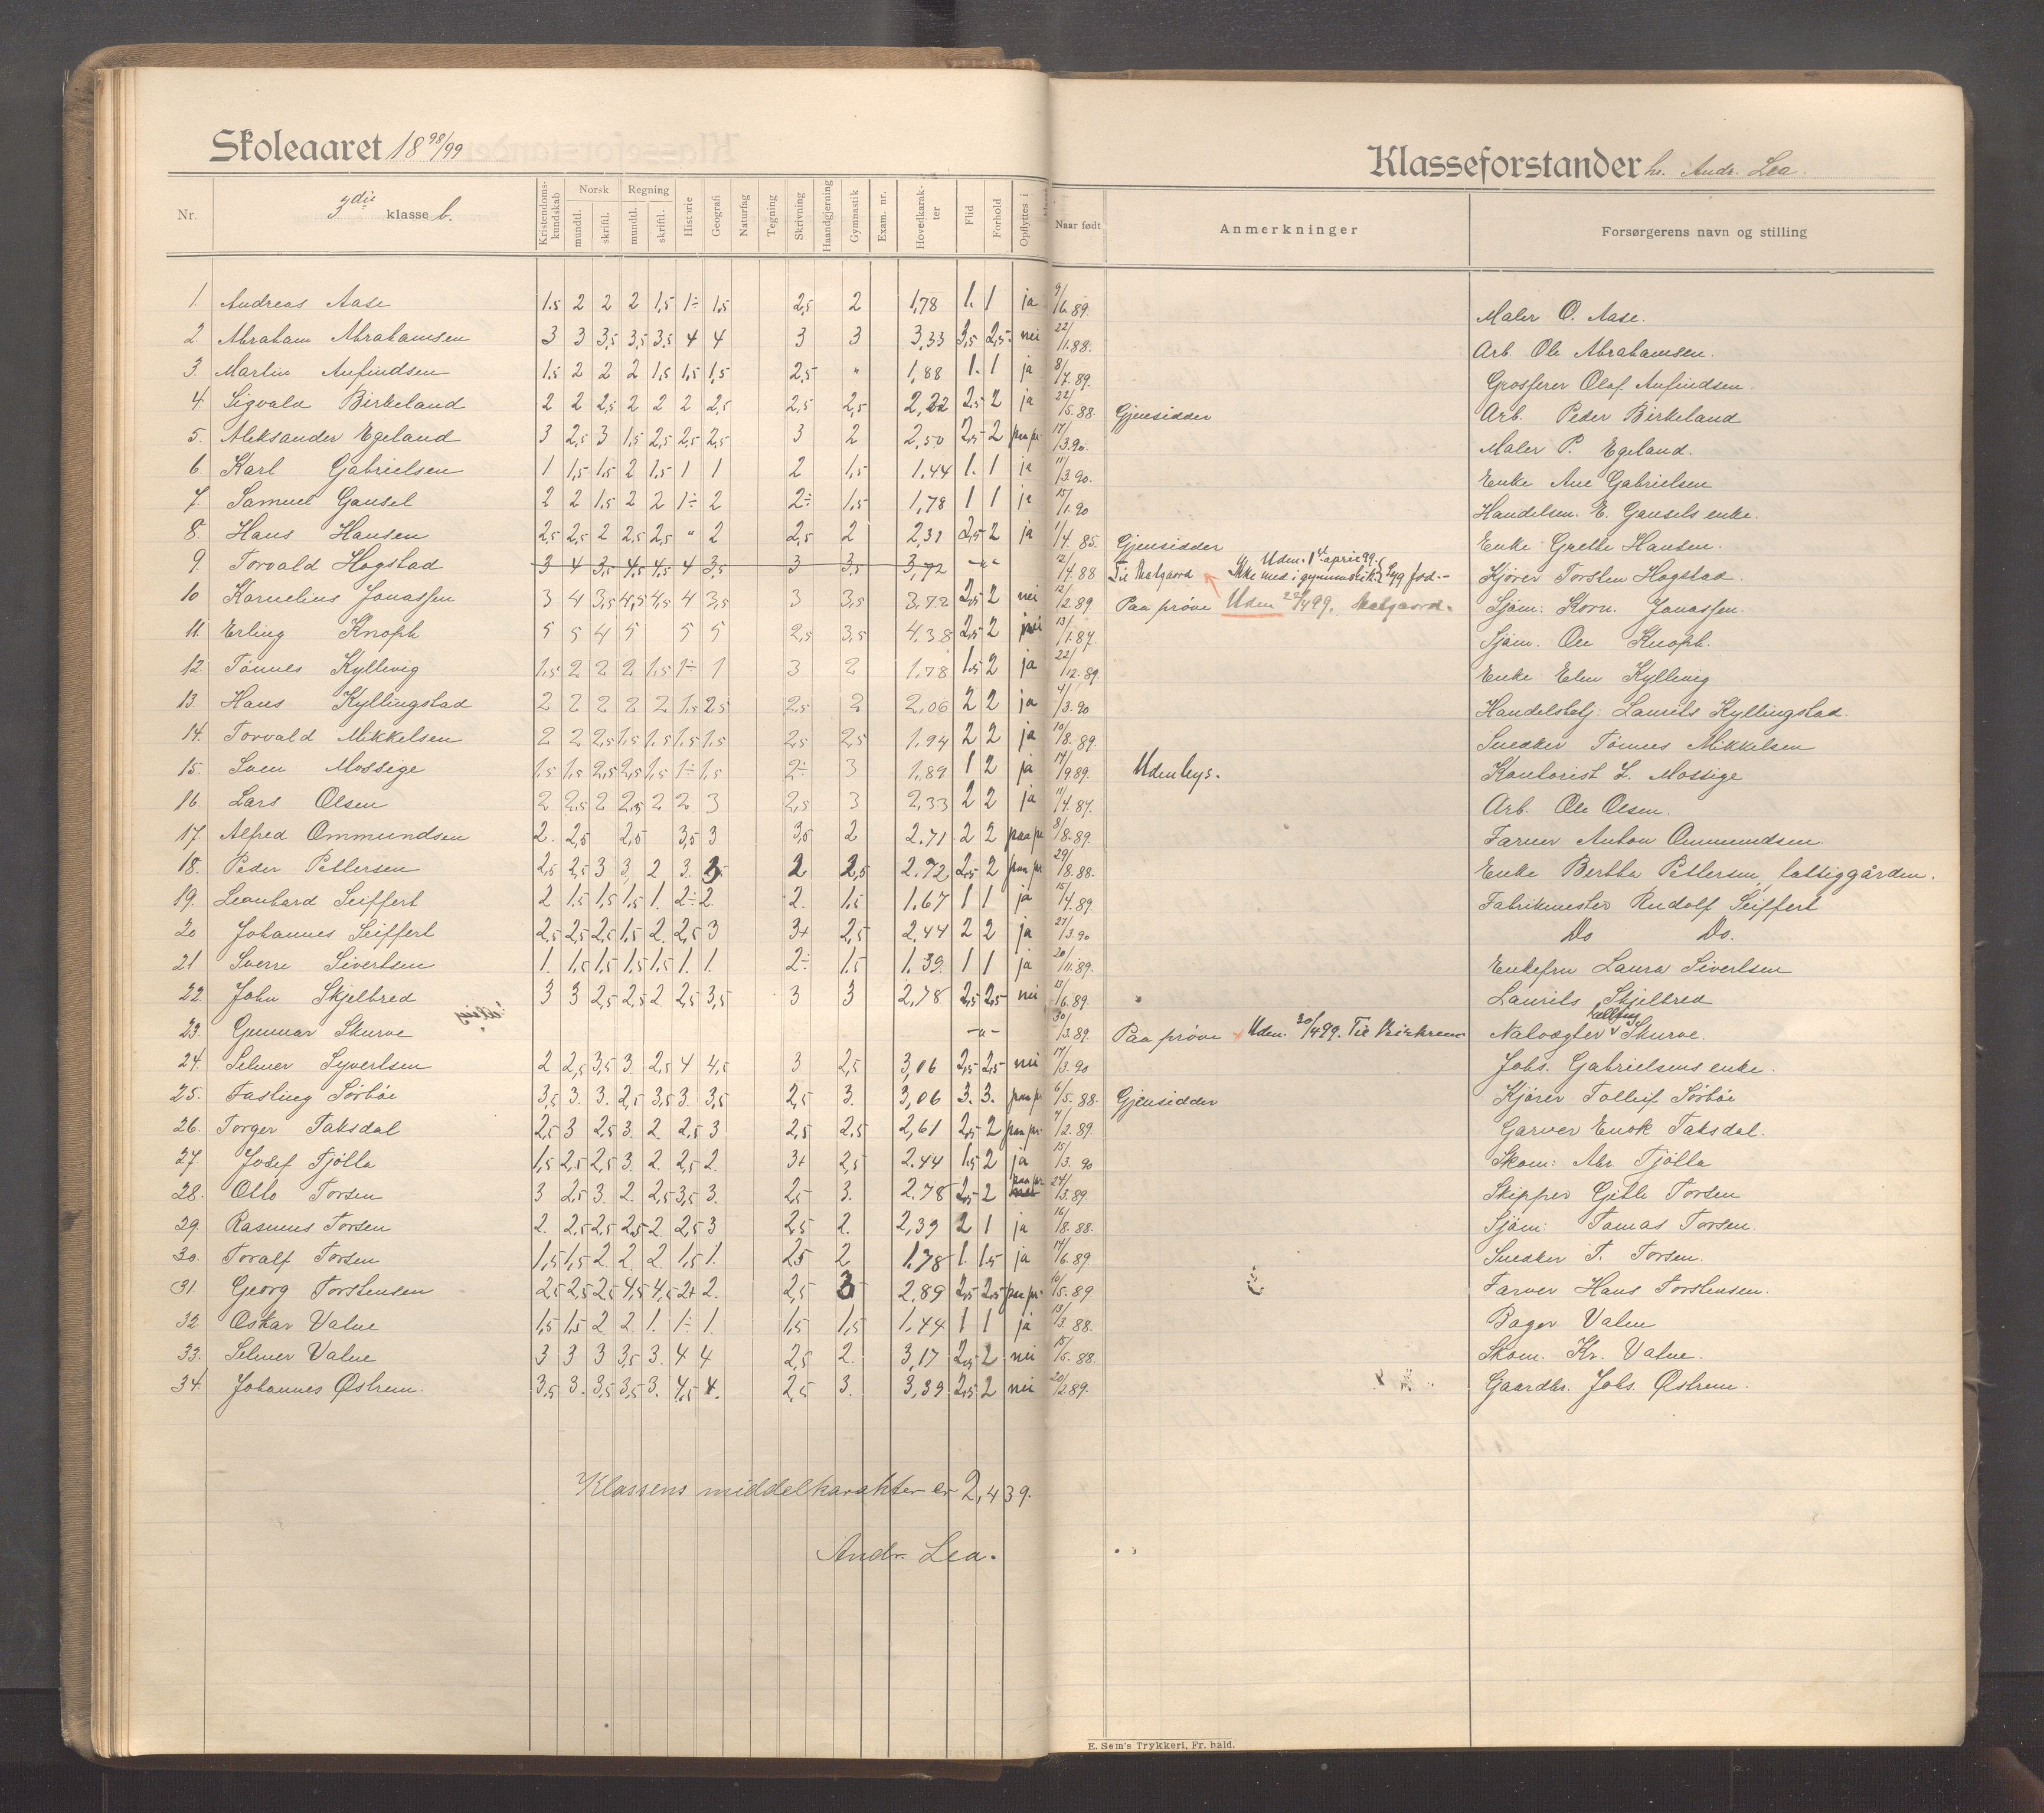 Skoleaaret 18 98/99
Klasseforstander hr. Andr. Lea.
Nr. 3die klasse b. Kristendomskundskab Norsk mundtl. skriftl. Regning mundtl. skriftl. Historie Geografi Naturfag Tegning Skrivning Haandgjerning Gymnastik Exam. nr. Hovedkarakter Flid Forhold Opflyttes i klasse Naar født Anmerkninger Forsørgerens navn og stilling
1. Andreas Aase 1.5 2 2 2 1,5 1÷ 1,5 2,5 2 1,78 1. 1 ja 9/6.89. Maler O. Aase.
2. Abraham Abrahamsen 3 3 3,5 3,5 3,5 4 4 3 3 3,33 3,5 2,5 nei 22/11.88. Arb. Ole Abrahamsen.
3. Martin Anfindsen 1.5 2 2 2 1,5 1,5 1,5 2,5 " 1,88 1. 1 ja 8/7.89. Grosserer Olaf Anfindsen.
4. Sigvald Birkeland 2 2 2,5 2 2 2 2,5 2,5 2,5 2,22 2,5 2 ja 22/5.88. Gjensidder Arb. Peder Birkeland
5. Aleksander Egeland 3 2,5 3 1,5 2,5 2,5 2,5 3 2 2,50 2,5 2 paa pr. 17/3.90. Maler P. Egeland.
6. Karl Gabrielsen 1 1,5 1,5 2 1,5 1 1 2 1,5 1.44 1. 1 ja 11/3.90. Enke Ane Gabrielsen
7. Samuel Gausel 2 2 1.5 2 2 1÷ 2 2÷ 1,5 1,78 1 1 ja 15/1.90 Handelsm. E. Gausels enke.
8. Hans Hansen 2,5 2,5 2 2,5 2,5 " 2 2,5 2 2,31 2,5 2 ja 1/4.85. Gjensidder Enke Grethe Hansen.
9. Torvald Hogstad 3 4 3,5 4,5 4,5 4 3,5 3 3,5 3,72 -"- 12/4.88 Til Matgaard Udm. 1ste april 99. Ikke med i gymnastik. Syg fod.- Kjører Torsten Hogstad.
10 Kornelius Jonassen 3 4 3,5 4,5 4,5 4 3,5 3 3,5 3,72 2,5 2 nei 12/2.89 Paa prøve Uden 22/4 99. Matgaard. Sjøm: Korn. Jonassen.
11. Erling Knoph 5 5 4 5 5 5 2,5 3,5 4.38 2,5 2 nei 13/1.87. Sjøm. Ole Knoph.
12. Tønnes Kyllevig 1,5 2 2 2 1,5 1÷ 1 3 2 1,78 1.5 2 ja 22/12.89. Enke Elen Kyllevig
13. Hans Kyllingstad 2 2 2 2 2 1,5 2,5 2,5 2 2,06 2 2 ja 4/3.90 Handelsbetj: Laurits Kyllingstad.
14. Torvald Mikkelsen 2 2 2,5 1,5 1,5 1,5 1,5 2,5 2,5 1.94 2 2 ja 10/8.89. Snedker Tønnes Mikkelsen
15. Sven Mossige 1,5 1,5 2,5 2,5 1,5 1÷ 1,5 2÷ 3 1,89 1 2 ja 17/9.89. Udenbys. Kontorist L. Mossige
16. Lars Olsen 2 2,5 2 2,5 2 2 3 2,5 3 2,33 2 2 ja 11/4.87. Arb. Ole Olsen.
17. Alfred Ommundsen 2. 2,5 2,5 3,5 3 3,5 2 2.71 2 2 paa pr 8/8.89 Farver Anton Ommundsen.
18. Peder Pettersen 2,5 2,5 3 3, 2 3. 3 2 2,5 2.72 2,5 2 paa pr 29/8.88. Enke Bertha Pettersen, fattiggården.
19. Leonhard Seiffert 2 1.5 1,5 1,5 1. 2÷ 2. 2. 1.5 1.67 1 1 ja 15/4.89. Fabrikmester Rudolf Seiffert
20 Johannes Seiffert 2,5 2,5 2,5 1,5 2. 2,5 3 3+ 2,5 2,44 2 2 ja 27/3.90 Do Do.
21 Sverre Sivertsen 1. 1,5 1,5 1,5 1,5 1. 1. 2÷ 1.5 1.39. 1 1 ja 20/11.89. Enkefru Laura Sivertsen
22. John Skjelbred 3 3 2,5 2,5 2. 2,5 3,5 3 3 2,78 2,5 2,5 nei 13/6.89. Laurits Skjelbred
23. Gunnar Skurve -"- 30/3.89. Paa prøve × Uden. 30/4 99. Til Birkrem Natvogter Skurve.
24. Selmer Syvertsen 2 2,5 3,5 3. 2,5 4 4,5 3 2,5 3,06 2,5 2,5 nei 17/3.90 Johs. Gabrielsens enke.
25. Fasting Sørbøe 3,5 3. 3. 2,5 3,5 3. 3,5 2,5 3. 3,06 3. 3. paa pr 6/5.88. Gjensidder Kjører Tolleif Sørbøe
26. Torger Taksdal 2,5 3 2,5 3. 2. 2,5 3 2,5 2.5 2,61 2,5 2 paa pr. 7/2.89. Garver Enok Taksdal.
27. Josef Tjølla 1,5 2,5 2,5 3. 2. 2,5 2. 3+ 2,5 2.44 1.5 2 ja 15/3.90 Skom: Abr. Tjølla
28. Otto Torsen 3 2,5 3. 2. 2,5 3,5 3. 2,5 3. 2.78 2,5 2 paa pr. 24/3.89. Skipper Gitle Torsen
29. Rasmus Torsen 2. 2,5 2,5 2,5 2 2,5 3 2,5 2. 2,39 2 1 ja 16/8.88. Sjøm: Tomas Torsen.
30. Toralf Torsen 1,5 1,5 2 2. 2. 1,5 1. 2,5 2 1.78 1. 1.5 ja 17/6.89. Snedker T. Torsen.
31. Georg Torstensen 2,5 2,5 2,5 4,5 4,5 2+ 2. 2,5 3 2,89 2,5 2,5 paa pr. 10/5.89 Farver Hans Torstensen.
32 Oskar Vatne 1,5 1,5 2 2. 1. 1÷ 1. 1,5 1,5 1.44 1 1 ja 13/3.88. Bager Vatne
33. Selmer Vatne 3 3 3 3,5 3. 4 4 2,5 2. 3,17 2,5 2 nei 15/5.88. Skom. Kr. Vatne.
34. Johannes Østrem. 3,5 3. 3,5 3,5 3. 4,5 4. 2,5 3. 3,39 2,5 2 nei 20/2.89. Gaardbr. Johs. Østrem.
Klassens middelkarakter er 2,439.
Andr. Lea.
E. Sem's Trykkeri, Fr. hald.